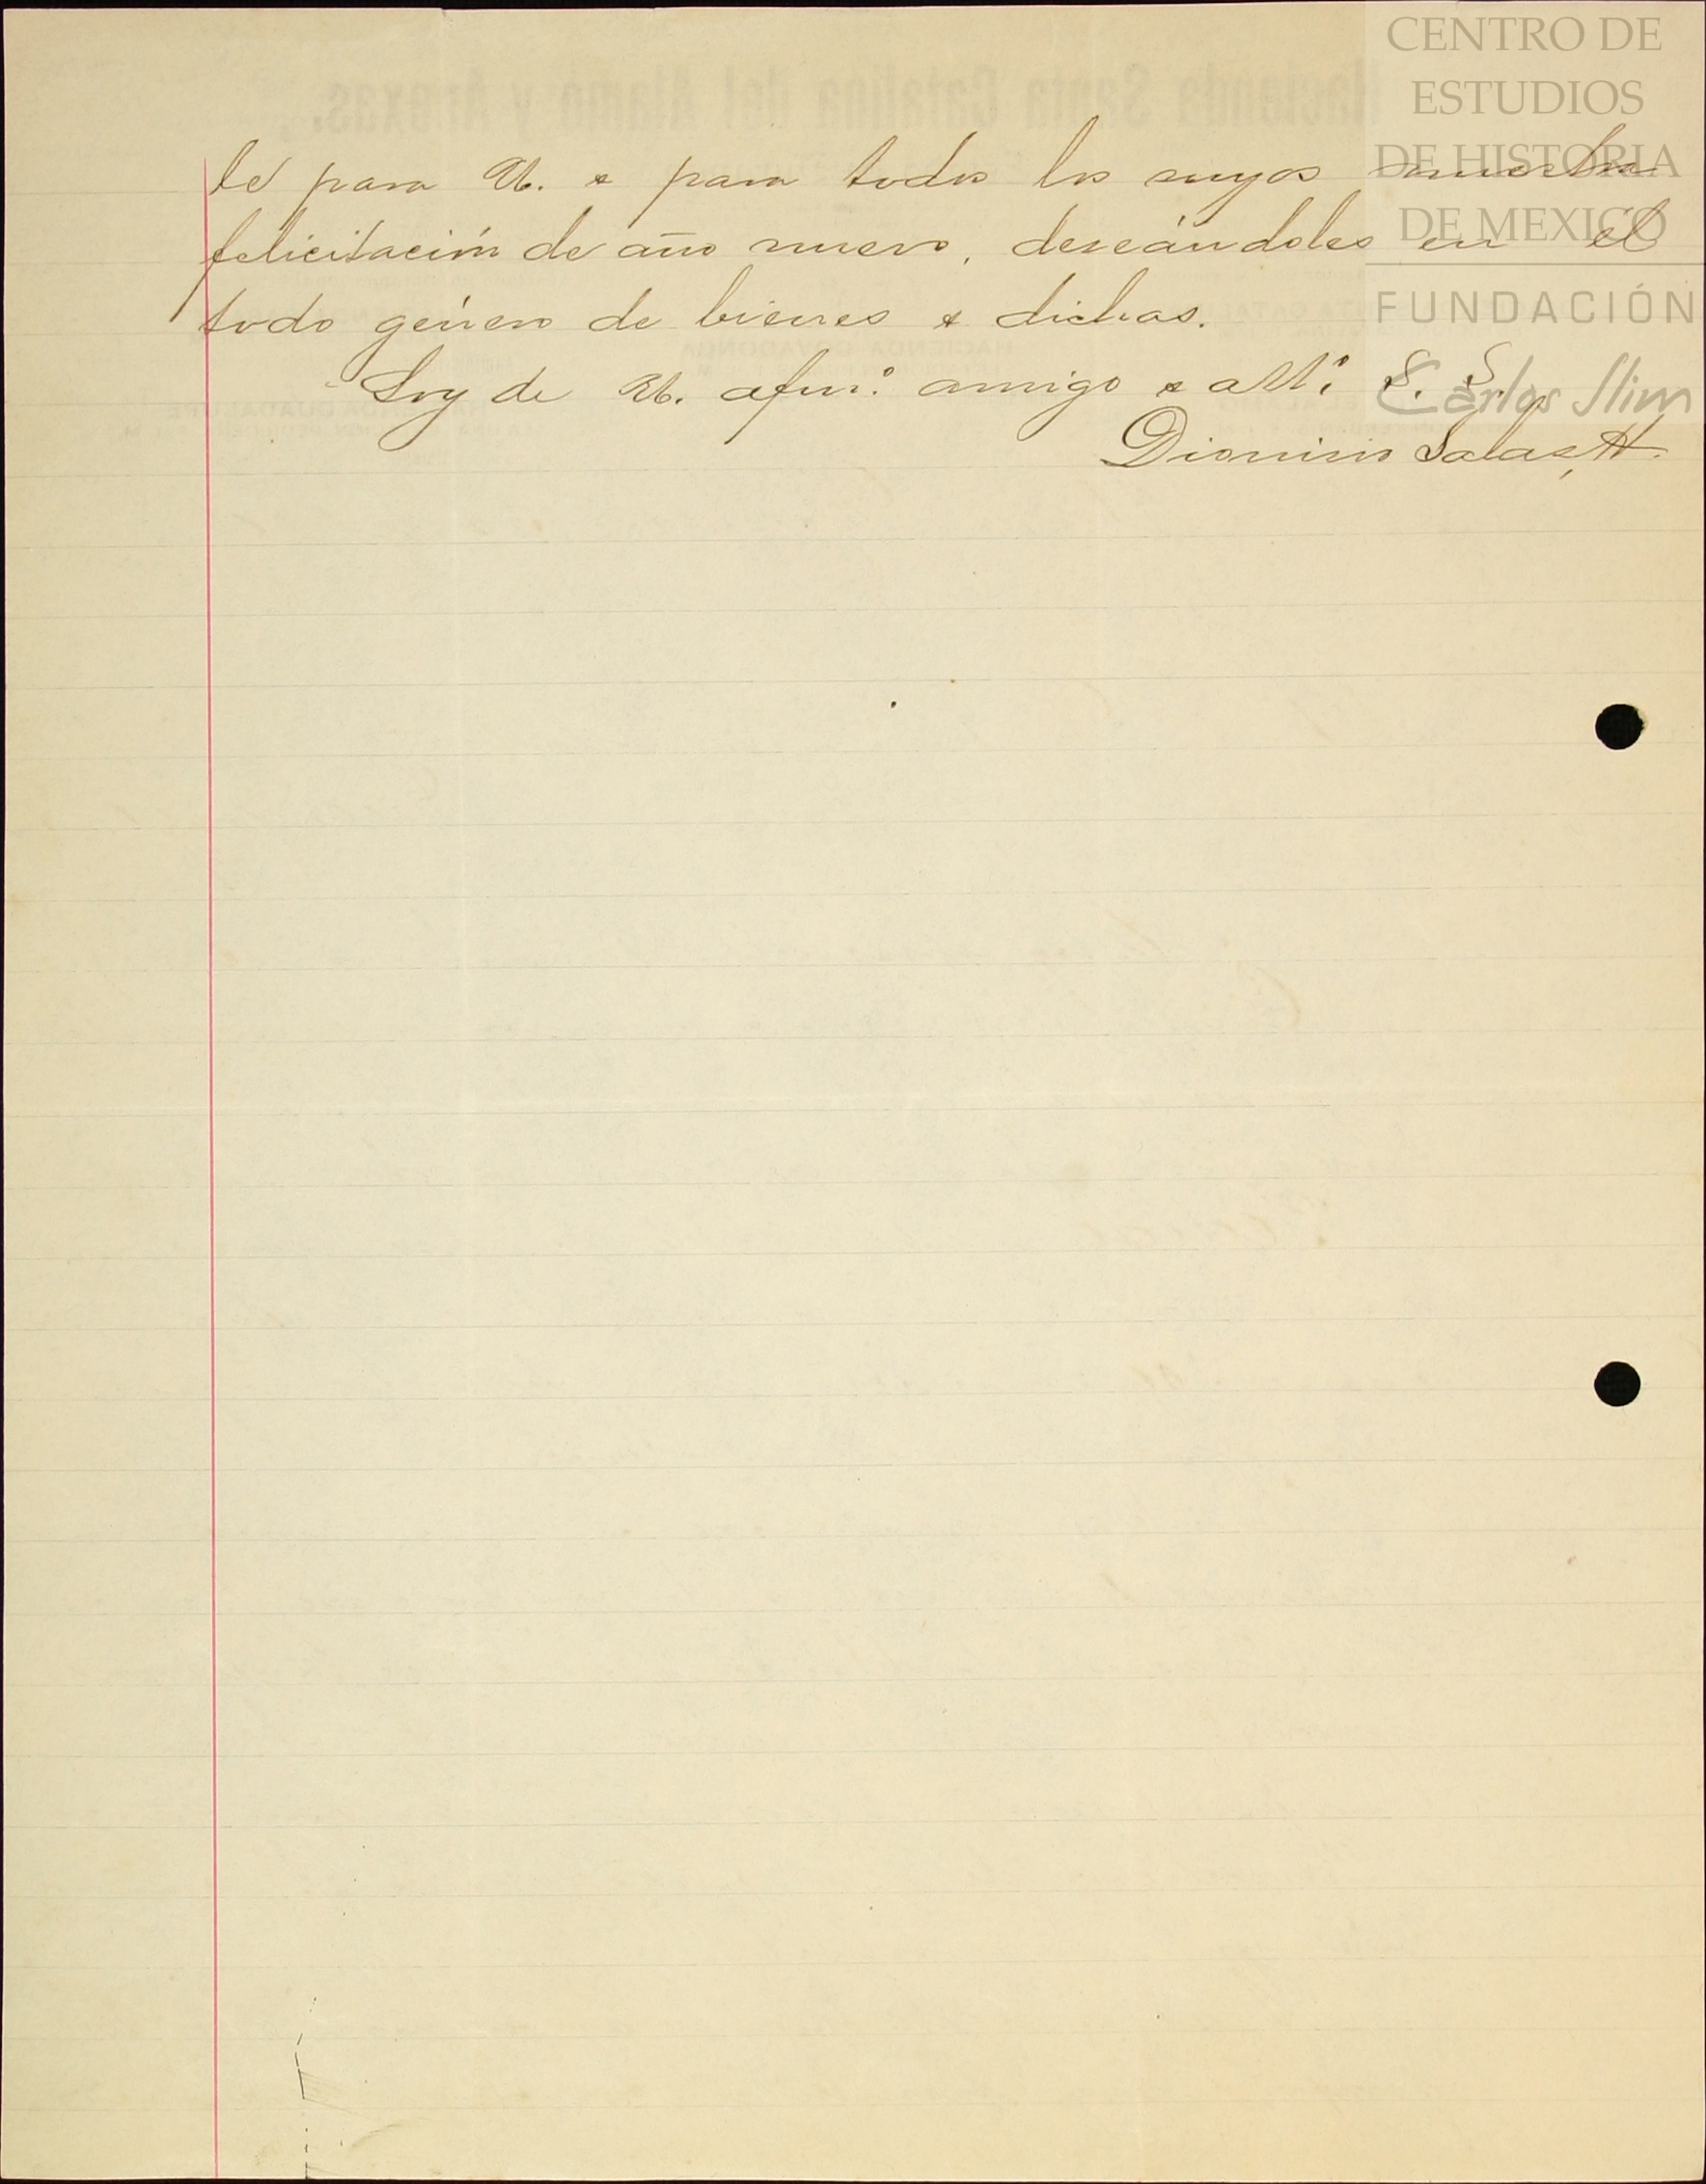 CENTRO DE
ESTUDIOS
DE HISTORIA
DE MEXICO
FUNDACIÓN
Carlos Slim
le para U. e para todos los suyos nuestra
felicitación de año nuevo, deseándoles en él
todo género de bienes e dichas.
Soy de U. afmo. amigo e atto. S. S.
Dionisio Salas, H.